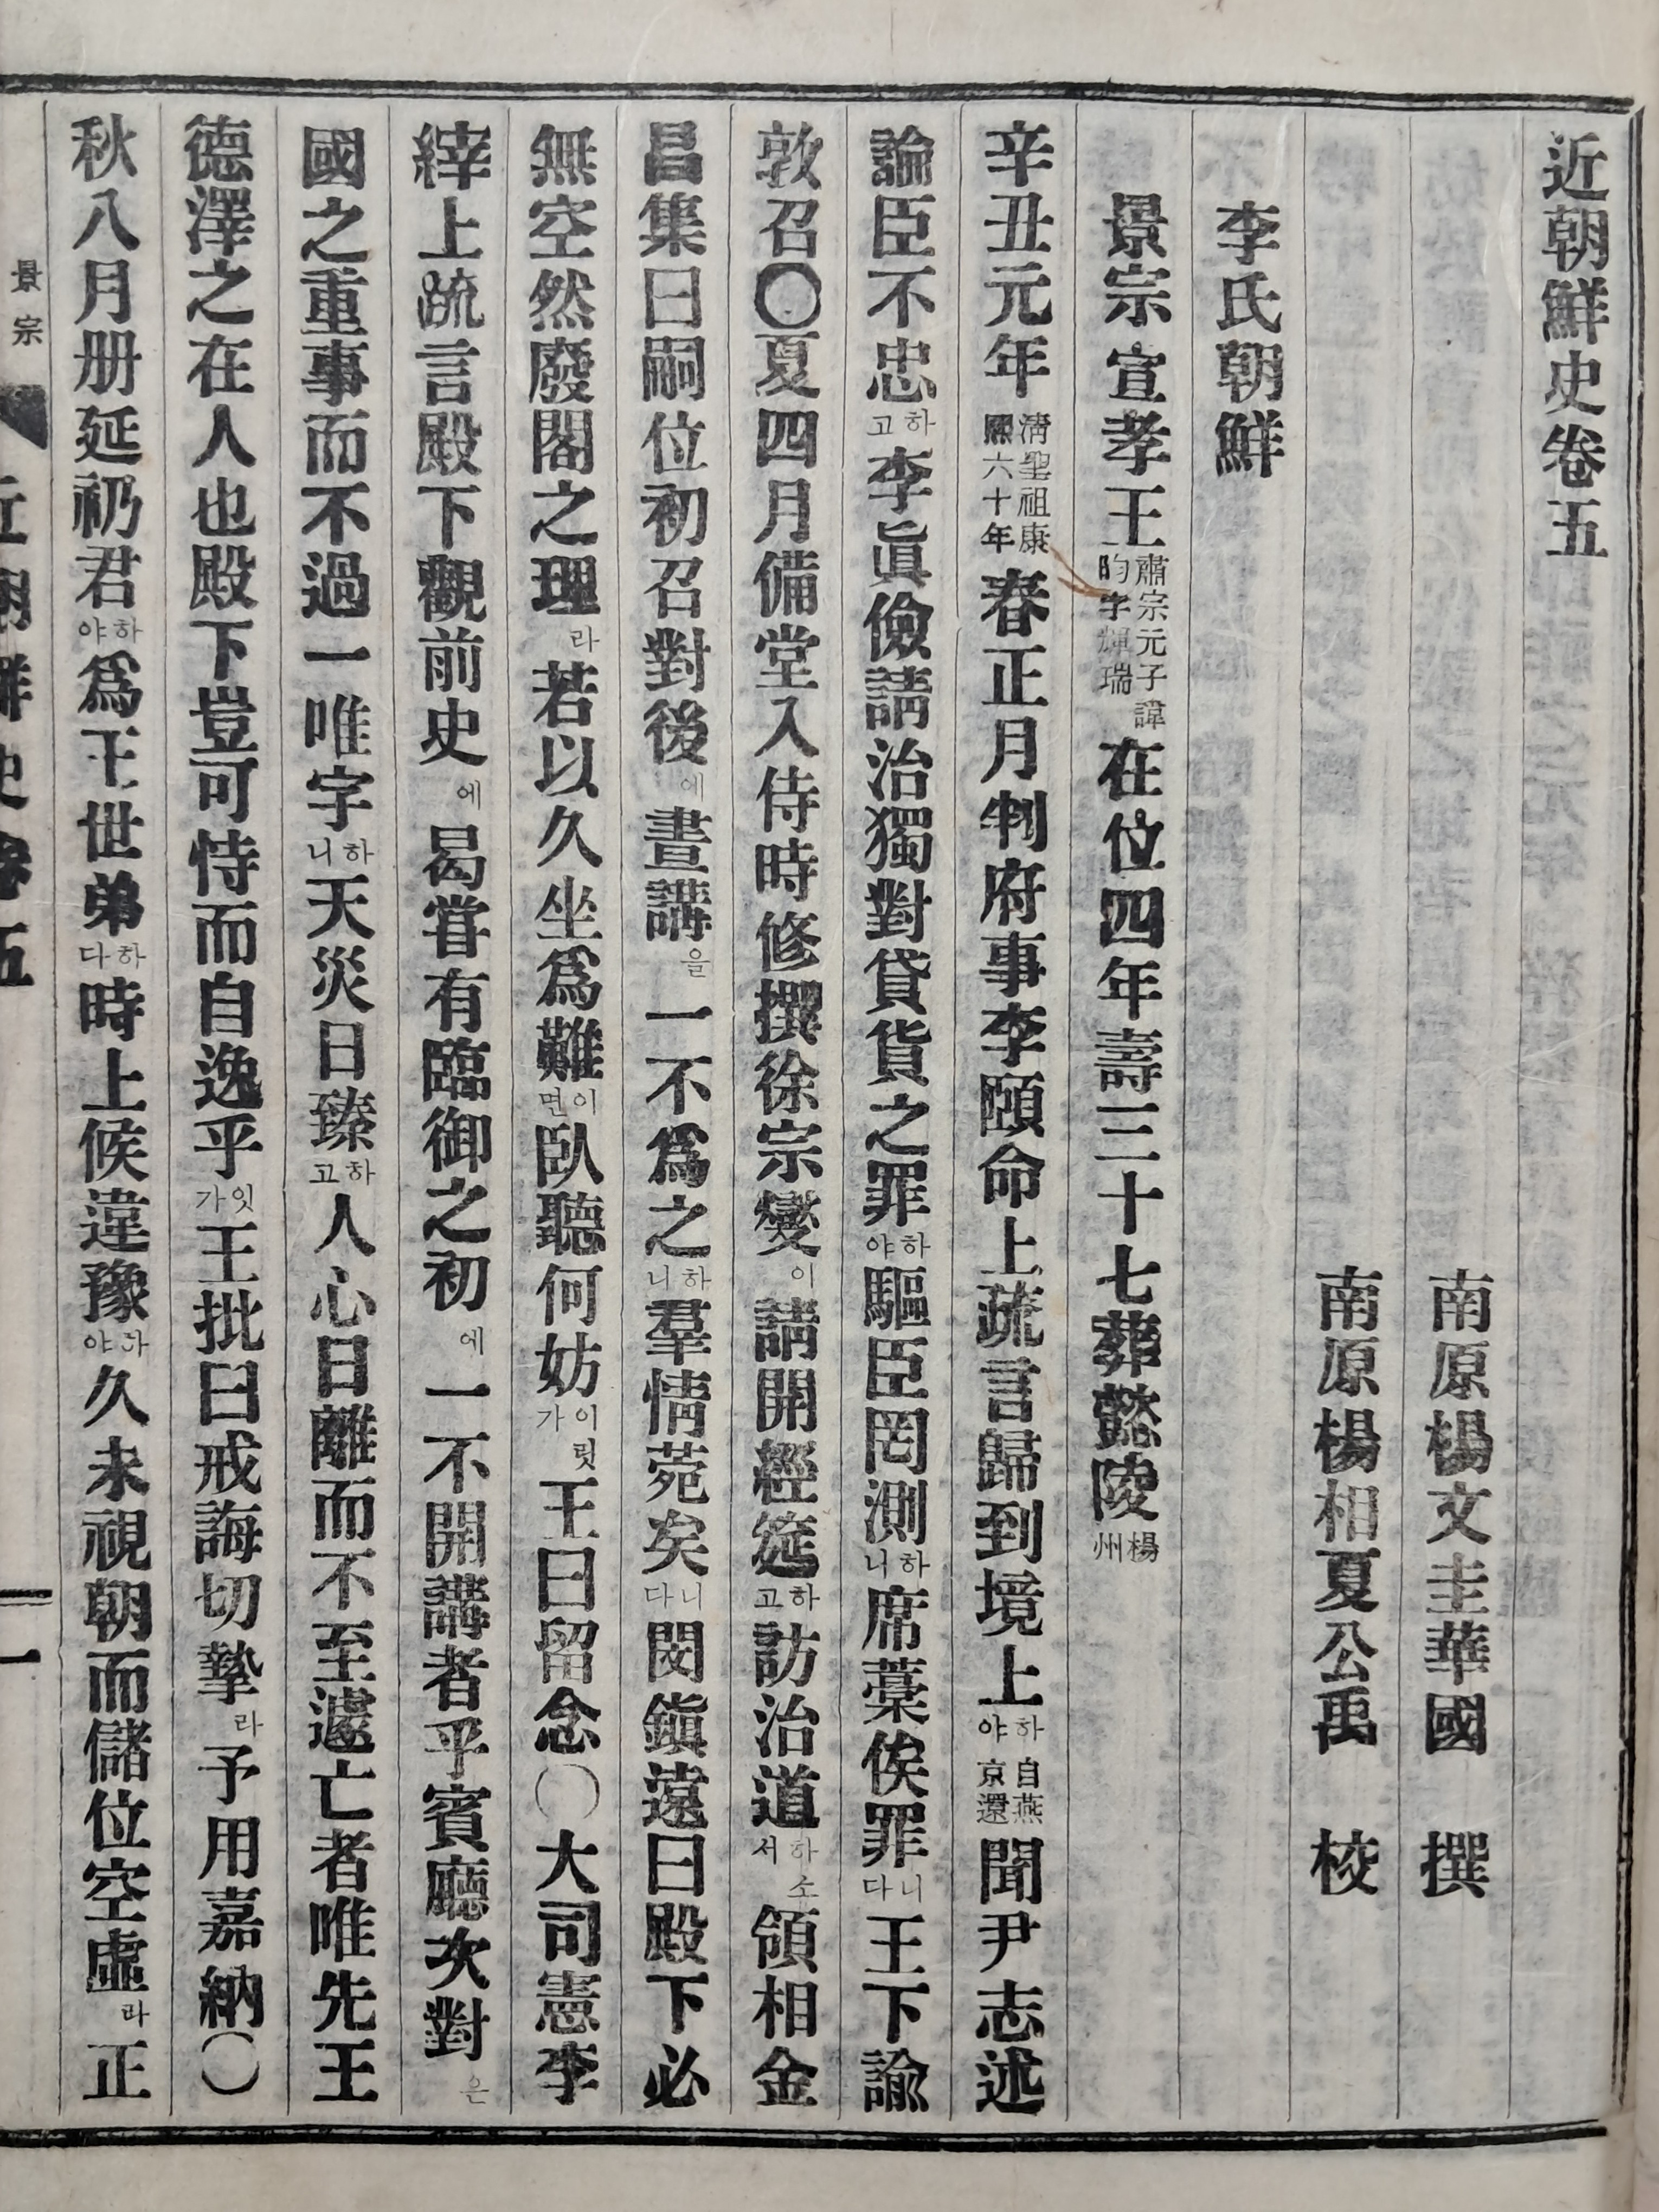 近朝鮮史卷五
南原楊文圭華國 撰
南原楊相夏公禹 校
李氏朝鮮
景宗宣孝王肅宗元子諱昀字輝瑞在位四年壽三十七葬懿陵楊州
辛丑元年淸聖祖康熙六十年春正月判府事李頤命上疏言歸到境上하야自燕京還聞尹志述
論臣不忠하고李眞儉請治獨對貸貨之罪하야驅臣罔測하니席藁俟罪니다王下諭
敦召〇夏四月備堂入侍時修撰徐宗燮이請開經筵하고訪治道하소서領相金
昌集曰嗣位初召對後에晝講을一不爲之하니羣情菀矣니다閔鎭遠曰殿下必
無空然廢閣之理라若以久坐爲難이면臥聽何妨이릿가王曰留念〇大司憲李
縡上疏言殿下觀前史에曷甞有臨御之初에一不開講者乎賓廳次對은
國之重事而不過一唯字하니天災日臻하고人心日離而不至遽亡者唯先王
德澤之在人也殿下豈可恃而自逸乎잇가王批曰戒誨切摯라予用嘉納〇
秋八月册延礽君하야爲王世弟하다時上候違豫하야久未視朝而儲位空虛라正
景宗
近朝鮮史卷五
一